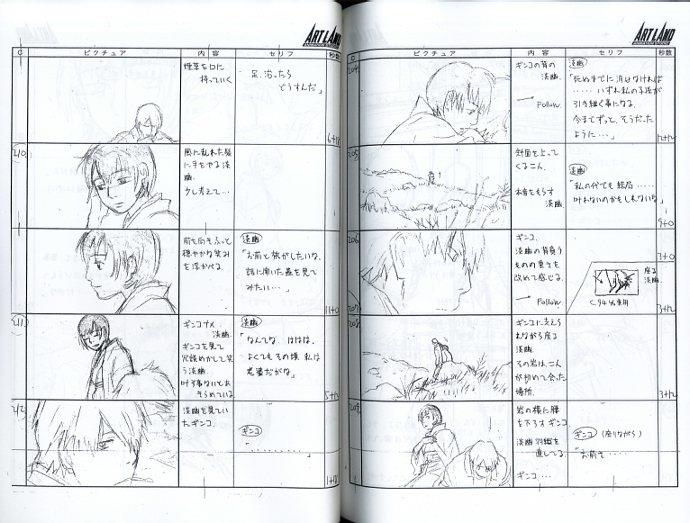 ARTLAND
C
ピクチュア
内容
セリフ
秒数
煙草を口に
持っていく
「足、治ったら
どうすんだ」
6+12
210
風に乱れた髪
に手をやる淡
幽.
少し考えて…
前を向きふっと
穏やかな笑み
を浮かべる.
淡幽
「お前と旅がしたいな.
話に聞いた蟲を見て
みたい…」
11+0
211
ギンコナメ
淡幽.
ギンコを見て
冗談めかして笑
う淡幽.
淡幽
「なんてな. ははは.
よくてもその頃 私は
老婆だがな」
5+12
212
淡幽を見てい
たギンコ.
ギンコ
ARTLAND
ピクチュア
内容
セリフ
秒数
204
ギンコの背の
淡幽.
Follow.
淡幽
「死ぬまでに 消せなければ
……いずれ私の子孫が
引き継ぐ事になる.
今までずっと、そうだった
ように…」
12+12
205
斜面を上って
くる二人.
本音をもらす
淡幽.
淡幽
「私の代でも結局……
叶わないのかもしれないな」
9+0
206
ギンコ.
淡幽の背負う
ものの重さを
改めて感じる.
Follow
座る
淡幽.
3+0
3+12
208
ギンコに支えら
れながら座る
淡幽
その岩は、二人
が初めて会った
場所.
3+12
209
岩の横に腰
を下ろすギンコ.
淡幽 羽織を
直してる.
ギンコ…
ギンコ (座りながら)
「お前さ…